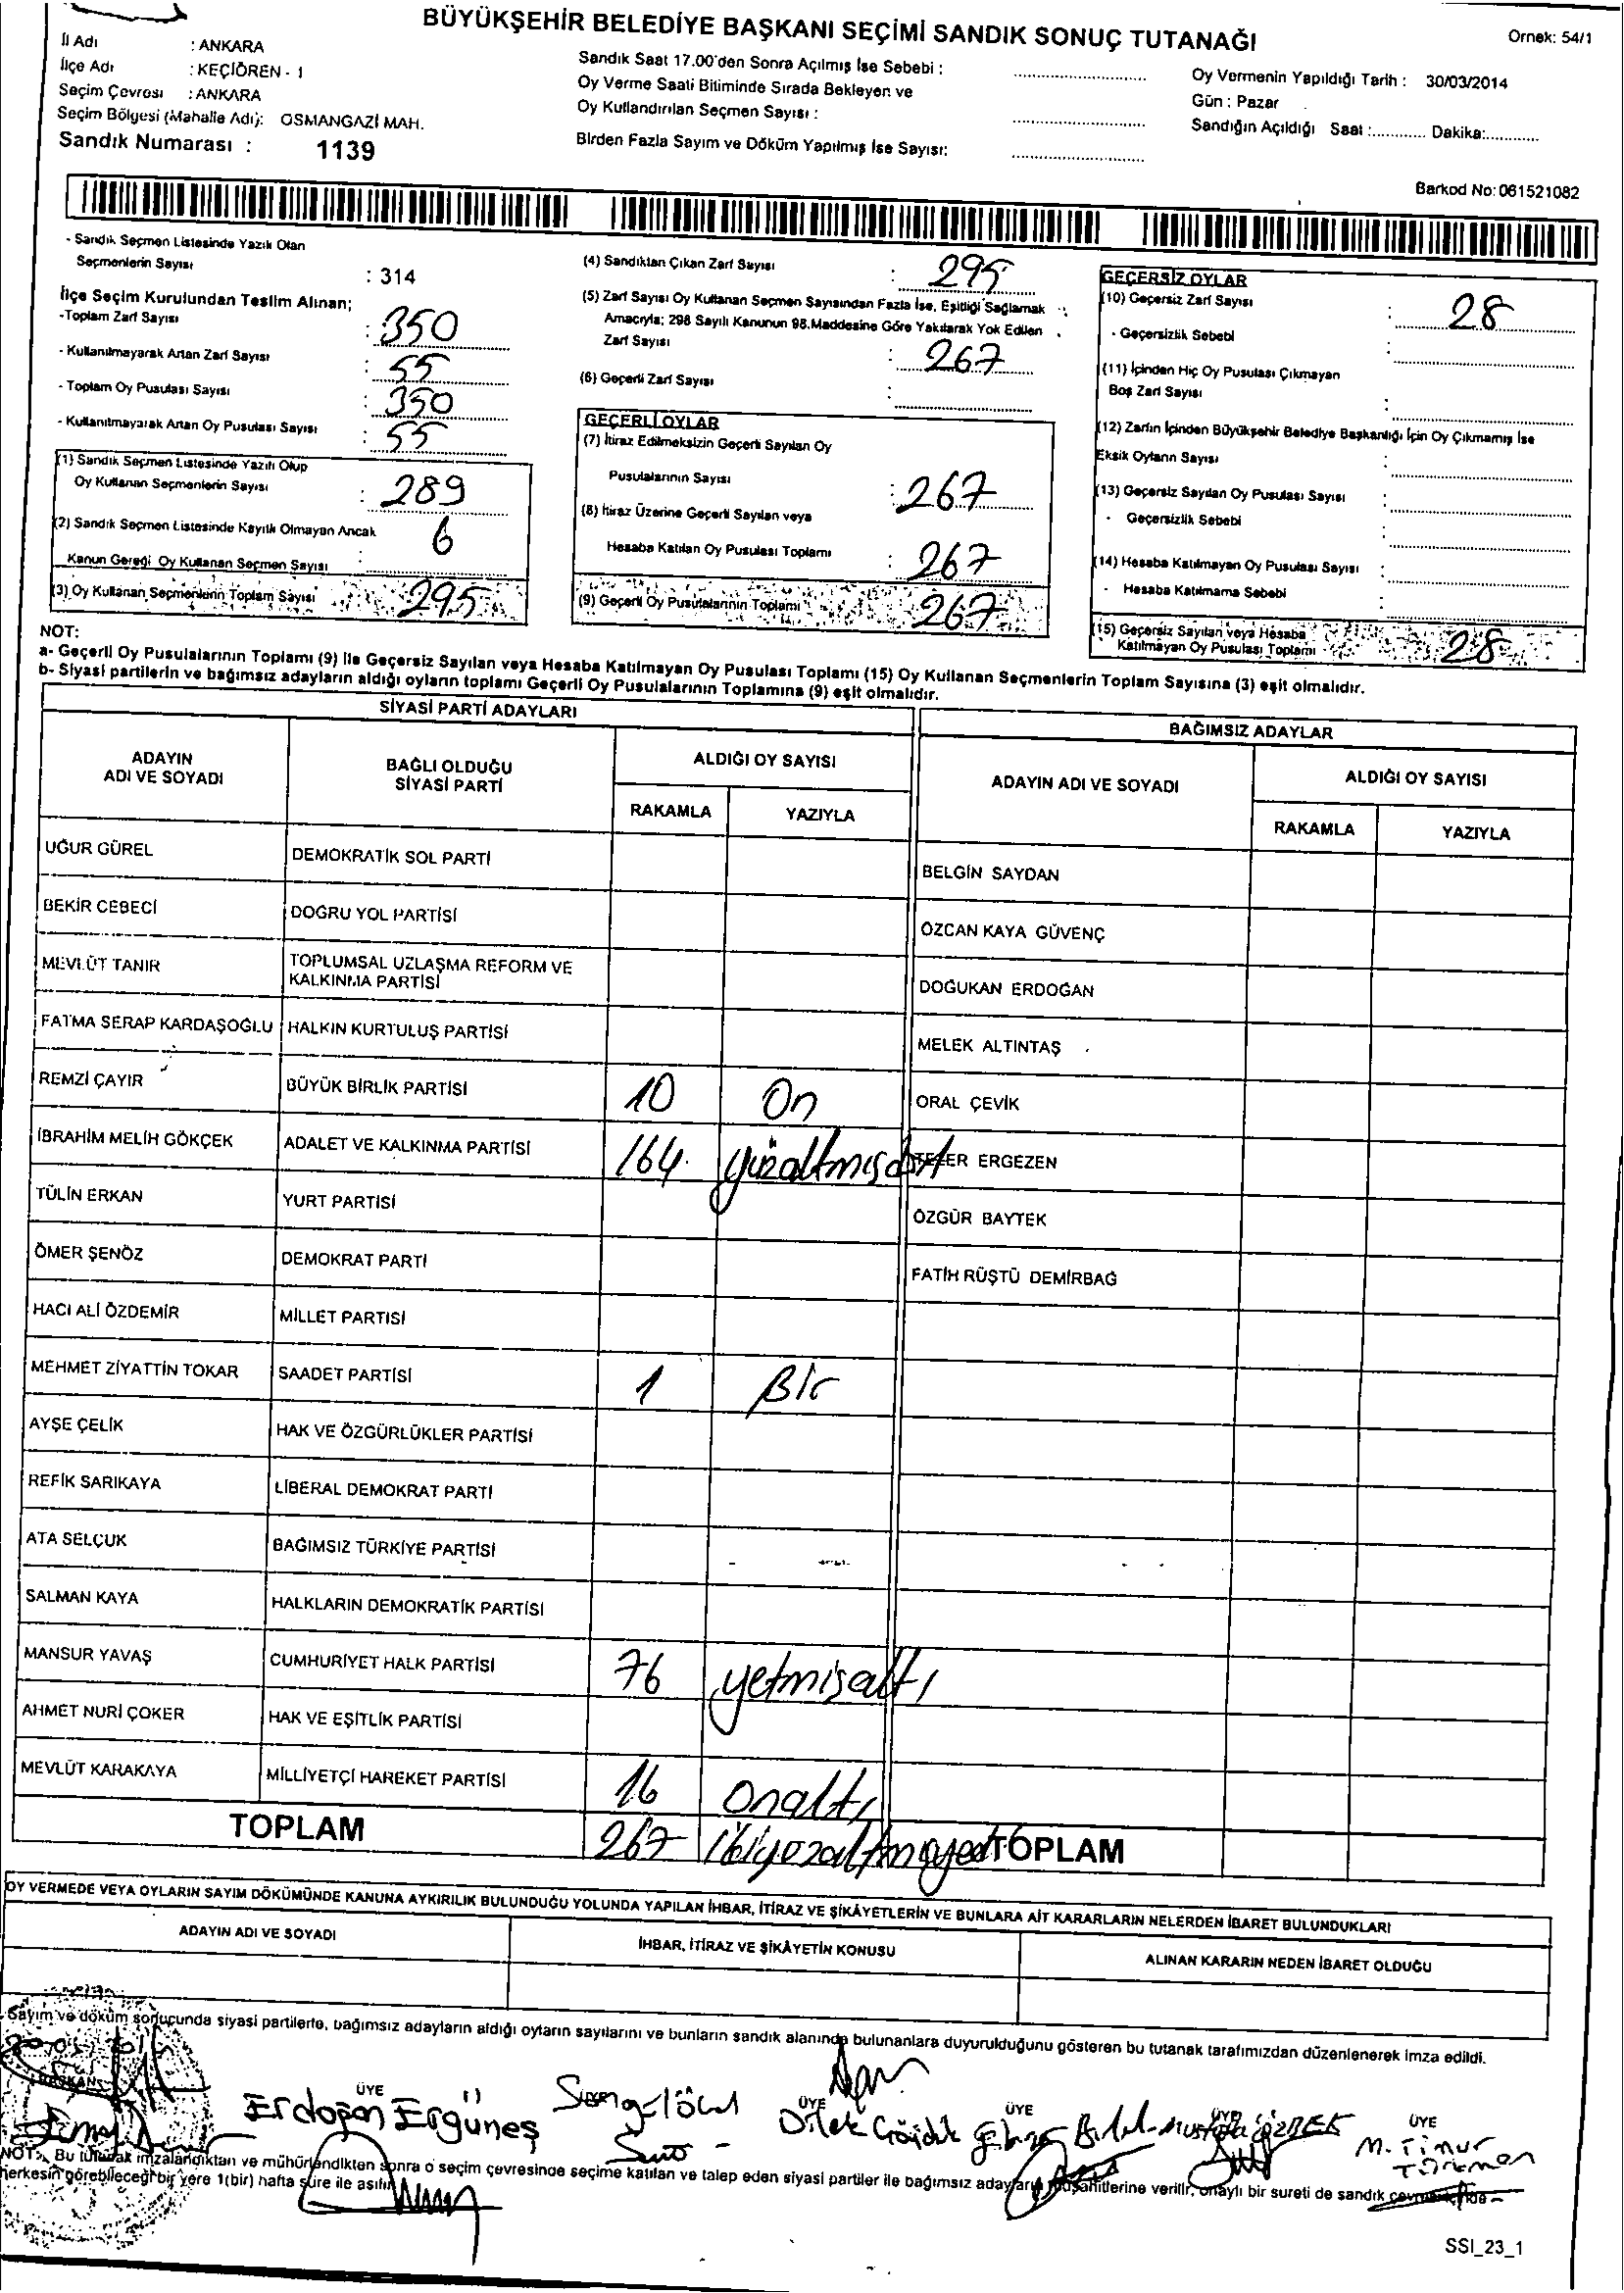 BÜYÜKŞEHİR BELEDİYE BAŞKANI SEÇİMİ SANDIK SONUÇ TUTANAĞI
Örnek: 54/1
İl Adı : ANKARA
İlçe Adı : KEÇİÖREN - 1
Seçim Çevresi : ANKARA
Seçim Bölgesi (Mahalle Adı): OSMANGAZİ MAH.
Sandık Numarası : 1139
Sandık Saat 17.00'den Sonra Açılmış İse Sebebi :
Oy Verme Saati Bitiminde Sırada Bekleyen ve
Oy Kullandırılan Seçmen Sayısı :
Birden Fazla Sayım ve Döküm Yapılmış İse Sayısı:
Oy Vermenin Yapıldığı Tarih : 30/03/2014
Gün : Pazar
Sandığın Açıldığı Saat :............ Dakika:............
Barkod No: 061521082
- Sandık Seçmen Listesinde Yazılı Olan
Seçmenlerin Sayısı : 314
İlçe Seçim Kurulundan Teslim Alınan;
-Toplam Zarf Sayısı : 350
- Kullanılmayarak Artan Zarf Sayısı : 55
- Toplam Oy Pusulası Sayısı : 350
- Kullanılmayarak Artan Oy Pusulası Sayısı : 55
(1) Sandık Seçmen Listesinde Yazılı Olup
Oy Kullanan Seçmenlerin Sayısı : 289
(2) Sandık Seçmen Listesinde Kayıtlı Olmayan Ancak
Kanun Gereği Oy Kullanan Seçmen Sayısı : 6
(3) Oy Kullanan Seçmenlerin Toplam Sayısı 295
(4) Sandıktan Çıkan Zarf Sayısı : 295
(5) Zarf Sayısı Oy Kullanan Seçmen Sayısından Fazla İse, Eşitliği Sağlamak
Amacıyla; 298 Sayılı Kanunun 98.Maddesine Göre Yakılarak Yok Edilen
Zarf Sayısı : 267
(6) Geçerli Zarf Sayısı :
GEÇERLİ OYLAR
(7) İtiraz Edilmeksizin Geçerli Sayılan Oy
Pusulalarının Sayısı : 267
(8) İtiraz Üzerine Geçerli Sayılan veya
Hesaba Katılan Oy Pusulası Toplamı : 267
(9) Geçerli Oy Pusulalarının Toplamı 267
GEÇERSİZ OYLAR
(10) Geçersiz Zarf Sayısı : 28
- Geçersizlik Sebebi :
(11) İçinden Hiç Oy Pusulası Çıkmayan
Boş Zarf Sayısı :
(12) Zarfın İçinden Büyükşehir Belediye Başkanlığı İçin Oy Çıkmamış İse
Eksik Oyların Sayısı :
(13) Geçersiz Sayılan Oy Pusulası Sayısı :
- Geçersizlik Sebebi :
(14) Hesaba Katılmayan Oy Pusulası Sayısı :
- Hesaba Katılmama Sebebi :
(15) Geçersiz Sayılan veya Hesaba
Katılmayan Oy Pusulası Toplamı 28
NOT:
a- Geçerli Oy Pusulalarının Toplamı (9) ile Geçersiz Sayılan veya Hesaba Katılmayan Oy Pusulası Toplamı (15) Oy Kullanan Seçmenlerin Toplam Sayısına (3) eşit olmalıdır.
b- Siyasi partilerin ve bağımsız adayların aldığı oyların toplamı Geçerli Oy Pusulalarının Toplamına (9) eşit olmalıdır.
SİYASİ PARTİ ADAYLARI
ADAYIN ADI VE SOYADI BAĞLI OLDUĞU SİYASİ PARTİ ALDIĞI OY SAYISI
RAKAMLA YAZIYLA
UĞUR GÜREL DEMOKRATİK SOL PARTİ
BEKİR CEBECİ DOĞRU YOL PARTİSİ
MEVLÜT TANIR TOPLUMSAL UZLAŞMA REFORM VE KALKINMA PARTİSİ
FATMA SERAP KARDAŞOĞLU HALKIN KURTULUŞ PARTİSİ
REMZİ ÇAYIR BÜYÜK BİRLİK PARTİSİ 10 On
İBRAHİM MELİH GÖKÇEK ADALET VE KALKINMA PARTİSİ 164 yüzaltmışdört
TÜLİN ERKAN YURT PARTİSİ
ÖMER ŞENÖZ DEMOKRAT PARTİ
HACI ALİ ÖZDEMİR MİLLET PARTİSİ
MEHMET ZİYATTİN TOKAR SAADET PARTİSİ 1 Bir
AYŞE ÇELİK HAK VE ÖZGÜRLÜKLER PARTİSİ
REFİK SARIKAYA LİBERAL DEMOKRAT PARTİ
ATA SELÇUK BAĞIMSIZ TÜRKİYE PARTİSİ
SALMAN KAYA HALKLARIN DEMOKRATİK PARTİSİ
MANSUR YAVAŞ CUMHURİYET HALK PARTİSİ 76 yetmişaltı
AHMET NURİ ÇOKER HAK VE EŞİTLİK PARTİSİ
MEVLÜT KARAKAYA MİLLİYETÇİ HAREKET PARTİSİ 16 Onaltı
TOPLAM 267
BAĞIMSIZ ADAYLAR
ADAYIN ADI VE SOYADI ALDIĞI OY SAYISI
RAKAMLA YAZIYLA
BELGİN SAYDAN
ÖZCAN KAYA GÜVENÇ
DOĞUKAN ERDOĞAN
MELEK ALTINTAŞ
ORAL ÇEVİK
ERGEZEN
ÖZGÜR BAYTEK
FATİH RÜŞTÜ DEMİRBAĞ
TOPLAM
OY VERMEDE VEYA OYLARIN SAYIM DÖKÜMÜNDE KANUNA AYKIRILIK BULUNDUĞU YOLUNDA YAPILAN İHBAR, İTİRAZ VE ŞİKÂYETLERİN VE BUNLARA AİT KARARLARIN NELERDEN İBARET BULUNDUKLARI
ADAYIN ADI VE SOYADI İHBAR, İTİRAZ VE ŞİKÂYETİN KONUSU ALINAN KARARIN NEDEN İBARET OLDUĞU
Sayım ve döküm sonucunda siyasi partilerle, bağımsız adayların aldığı oyların sayılarını ve bunların sandık alanında bulunanlara duyurulduğunu gösteren bu tutanak tarafımızdan düzenlenerek imza edildi.
BAŞKAN ÜYE ÜYE ÜYE ÜYE ÜYE
Erdoğan Ergüneş
Dilek
M. Timur
Türkmen
NOT: Bu tutanak imzalandıktan ve mühürlendikten sonra o seçim çevresinde seçime katılan ve talep eden siyasi partiler ile bağımsız adayların müşahitlerine verilir, onaylı bir sureti de sandık çevresi içinde
herkesin görebileceği bir yere 1(bir) hafta süre ile asılır.
SSI_23_1